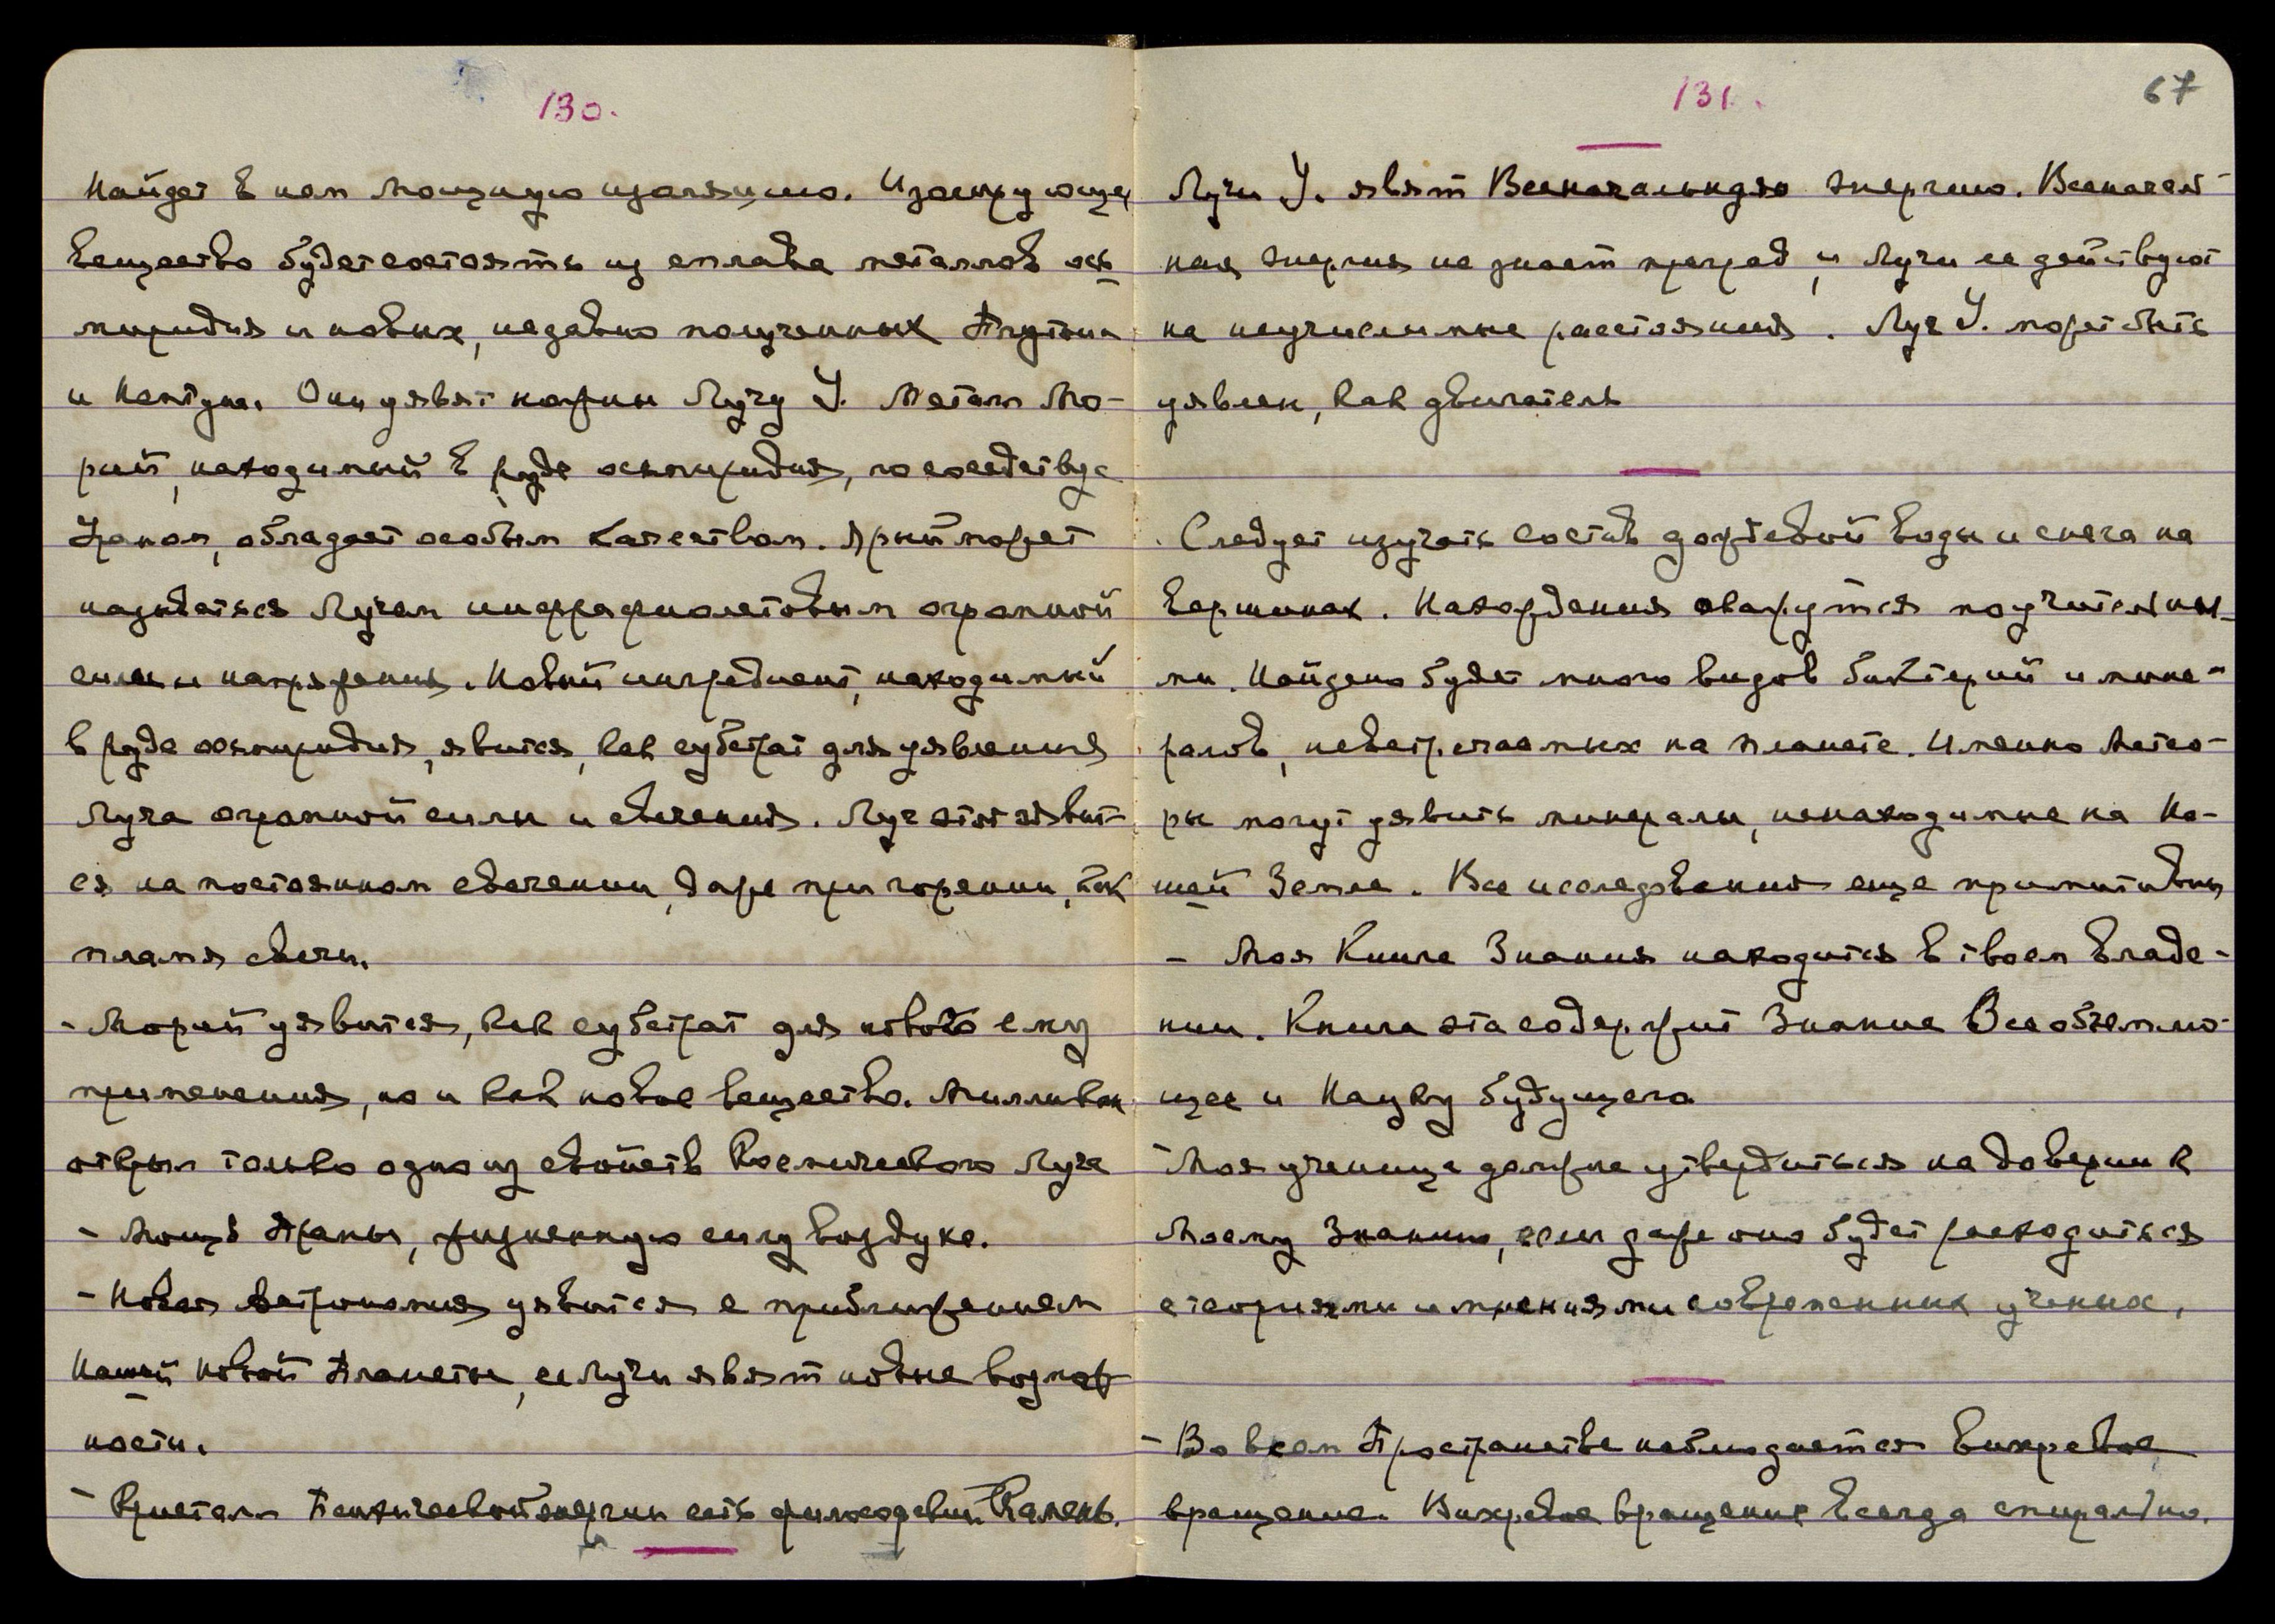 130.
Найдет в нем мощную изоляцию. Изолирующее
вещество будет состоять из сплава металлов ос-
миридия и новых, недавно полученных Плутона
и Нептуна. Они уявят нажим Лучу У. Металл Мо-
рий, находимый в руде осмиридия, по соседству с
Ураном, обладает особым качеством. Ярый может
называться Лучом инфрафиолетовым огромной
силы и напряжения. Новый ингредиент, находимый
в руде осмиридия, явится, как субстрат для уявления
Луча огромной силы и свечения. Луч этот явит-
ся на постоянном свечении, даже при горении, как
пламя свечи.
- Морий уявится, как субстрат для нового ему
применения, но и как новое вещество. Милликан
открыл только одно из свойств Космического Луча
- Мощь Праны, жизненную силу воздуха.
- Новая Астрономия уявится с приближением
Нашей новой Планеты, ее Лучи явят новые возмож-
ности.
- Кристалл Психической энергии есть философский Камень.
131.
67
Лучи У. явят Всеначальную энергию. Всеначаль-
ная энергия не знает преград, и Лучи ее действуют
на неучислимые расстояния. Луч У. может быть
уявлен, как двигатель
Следует изучать состав дождевой воды и снега на
вершинах. Нахождения окажутся поучительны-
ми. Найдено будет много видов бактерий и мине-
ралов, невстречаемых на планете. Именно Метео-
ры могут уявить минералы, ненаходимые на На-
шей Земле. Все исследования еще примитивны
- Моя Книга Знания находится в твоем владе-
нии. Книга эта содержит Знание Всеобъемлю-
щее и Науку будущего
- Моя ученица должна утвердиться на доверии к
Моему Знанию, если даже оно будет расходиться
с теориями и мнениями современных ученых.
- Во всем Пространстве наблюдается вихревое
вращение. Вихревое вращение всегда спирально.